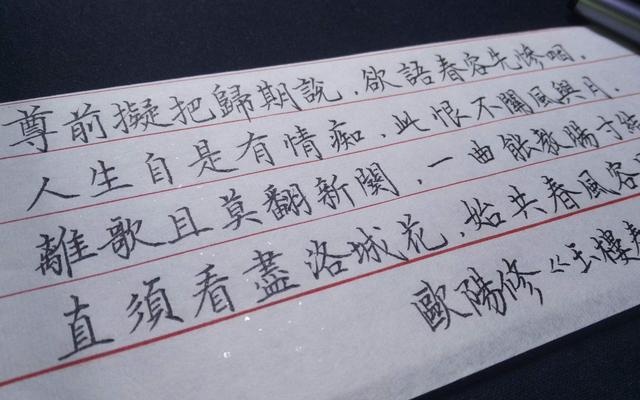 尊前擬把歸期說，欲語春容先慘咽．
人生自是有情痴，此恨不關風與月．
離歌且莫翻新闋，一曲能教腸寸
直須看盡洛城花，始共春風容
歐陽修《玉樓